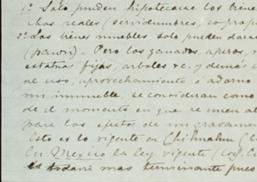 1º Solo pueden hipotecarse los bienes
los reales (servidumbres, co-prop
2º Los bienes muebles solo pueden darse
Pero los ganados, aperos,
estatuas fijas, arboles &c. y demás
al uso, aprovechamiento o adorno
un inmueble se consideran como
de el momento en que se
para los efectos de un gravamen
Esto es lo vigente en Chihuahua
En Mexico la ley vigente
es todavia mas terminante pues